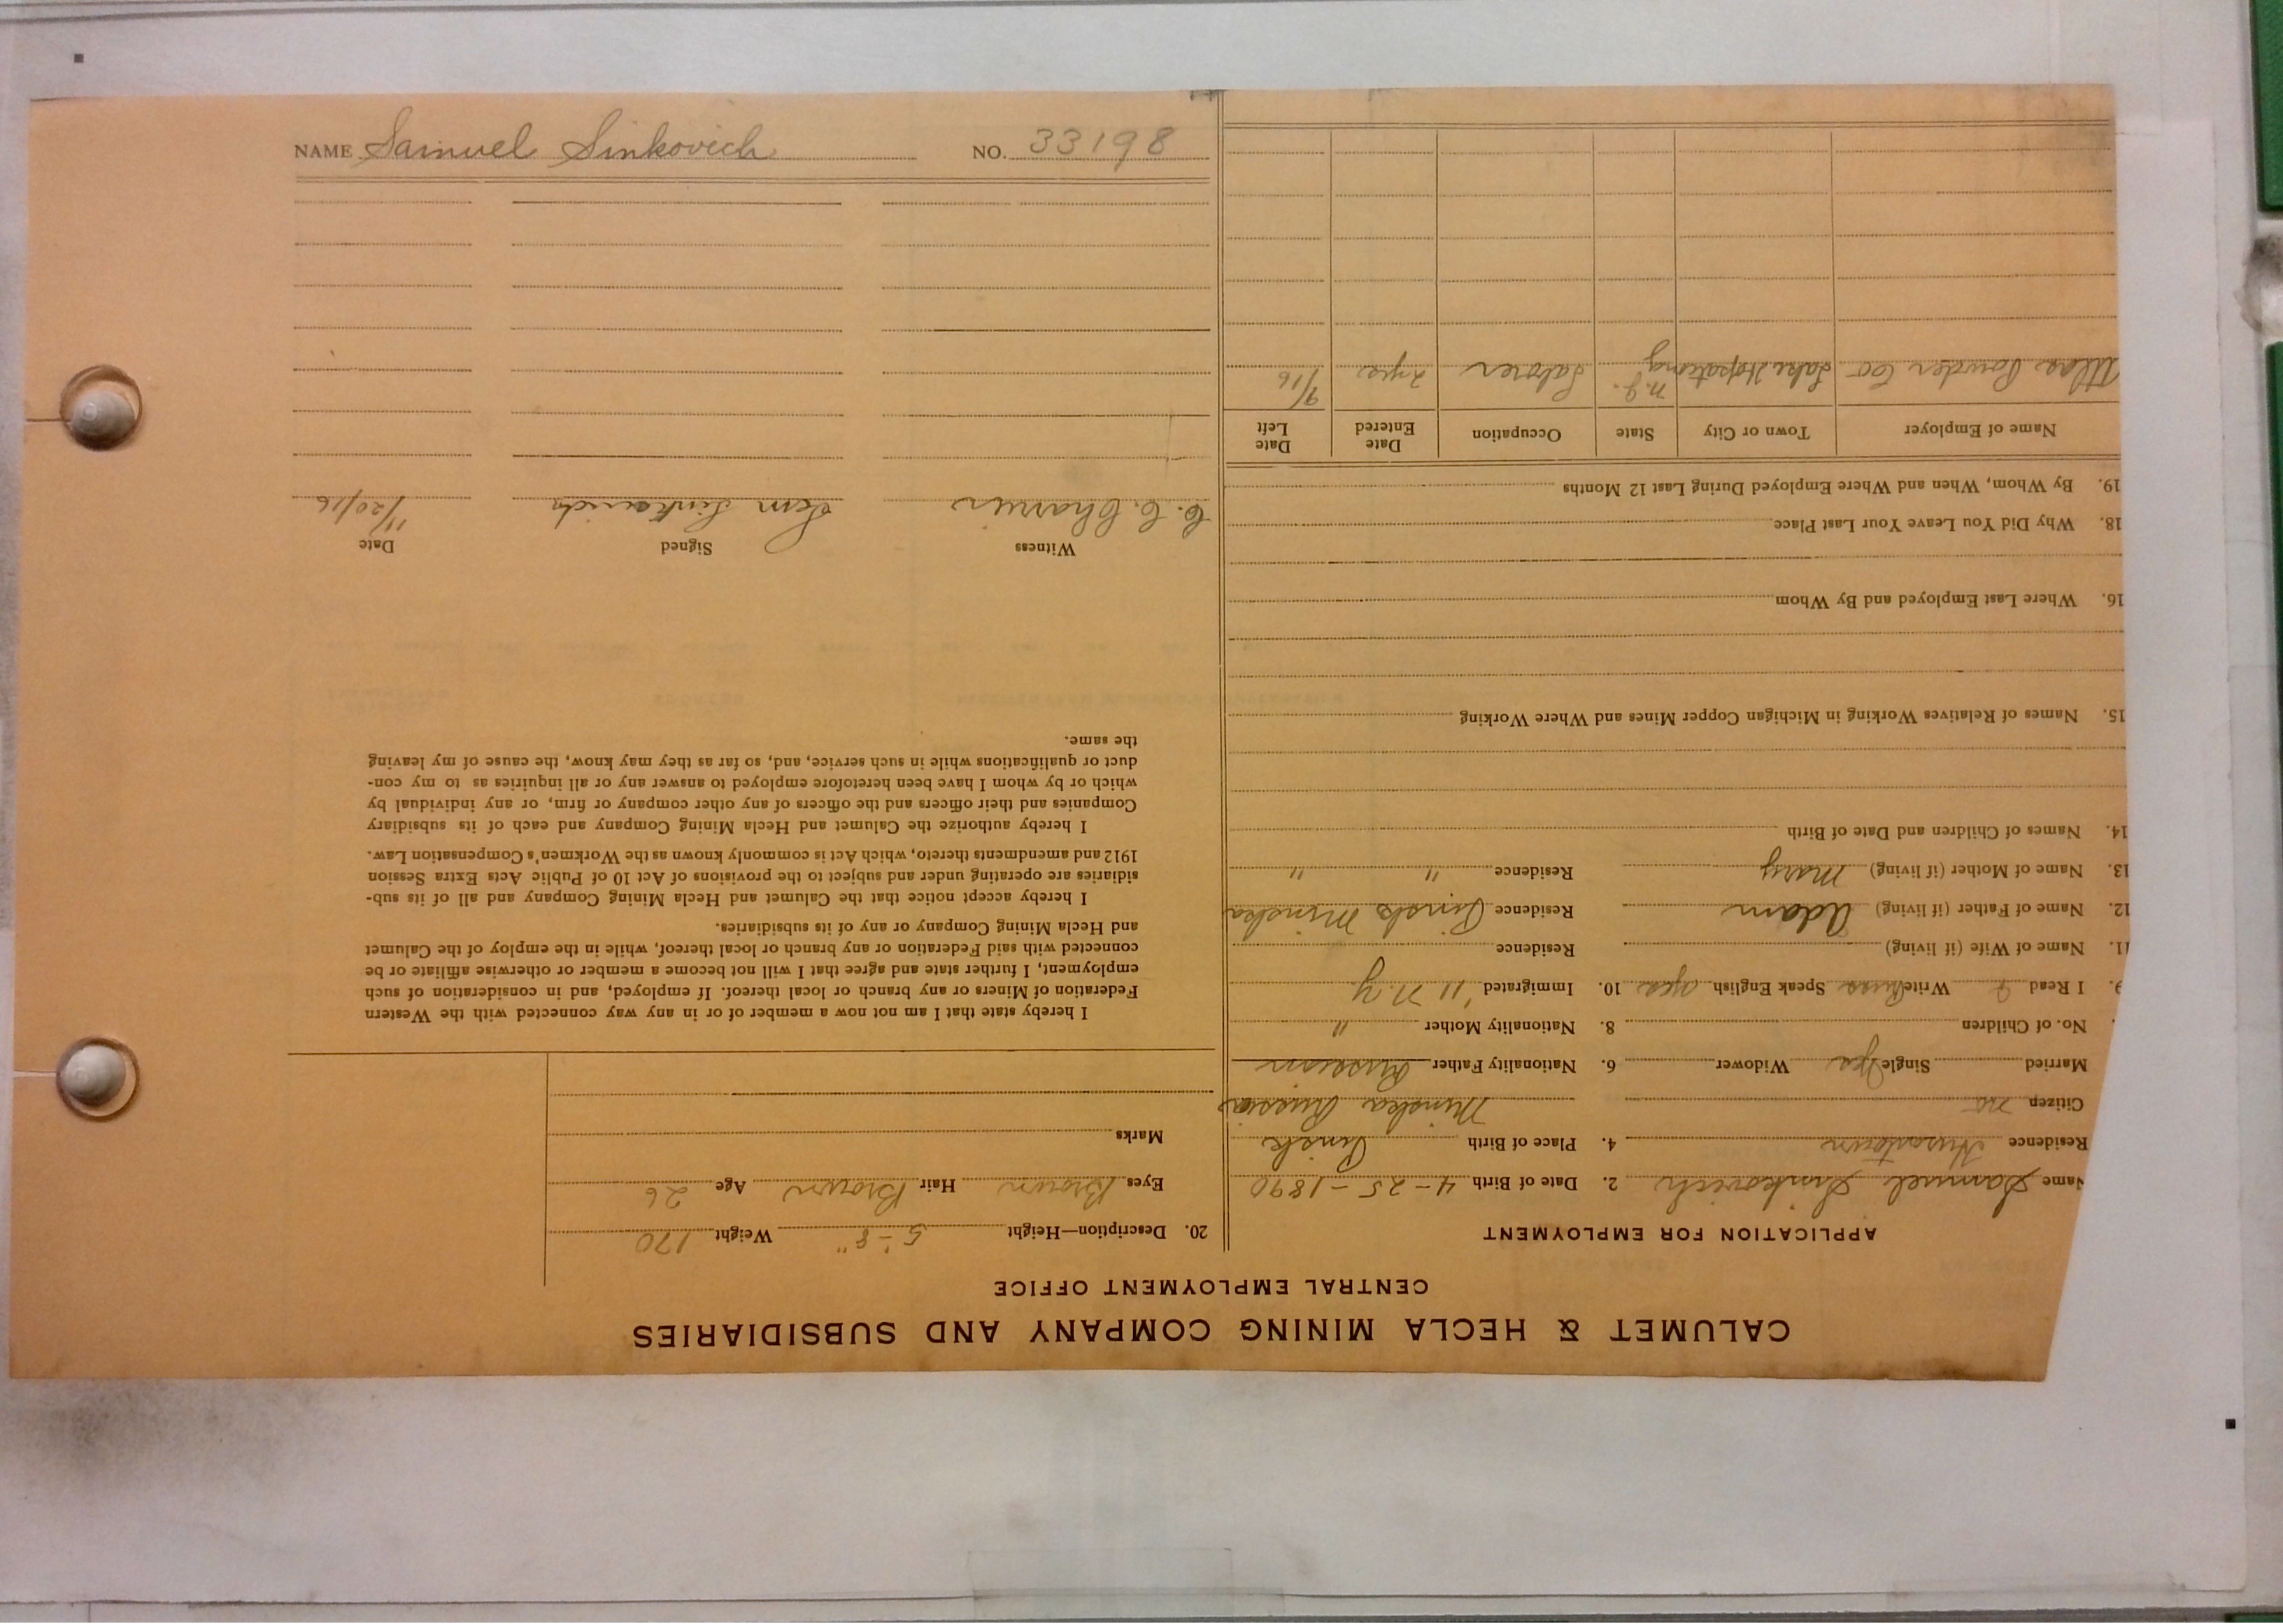 NAME Samuel Sinkovich NO. 33198
CALUMET & HECLA MINING COMPANY AND SUBSIDIARIES
CENTRAL EMPLOYMENT OFFICE
APPLICATION FOR EMPLOYMENT
Name Samuel Sinkovich 2. Date of Birth 4-25-1890
Residence 4. Place of Birth Pinsk
Citizen no Minska Russia
Married Single Yes Widower 6. Nationality Father Russian
No. of Children 8. Nationality Mother "
9. I Read Write Russ Speak English yes 10. Immigrated '11 N.Y
11. Name of Wife (if living) Residence
12. Name of Father (if living) Adam Residence Pinsk Minska
13. Name of Mother (if living) Mary Residence " "
14. Names of Children and Date of Birth
15. Names of Relatives Working in Michigan Copper Mines and Where Working
16. Where Last Employed and By Whom
18. Why Did You Leave Your Last Place
19. By Whom, When and Where Employed During Last 12 Months
Name of Employer Town or City State Occupation Date Entered Date Left
Atlas Powder Co Lake Hopatcong N.J. Laborer 2 yrs 9/16
20. Description—Height 5'-8" Weight 170
Eyes Brown Hair Brown Age 26
Marks
I hereby state that I am not now a member of or in any way connected with the Western
Federation of Miners or any branch or local thereof. If employed, and in consideration of such
employment, I further state and agree that I will not become a member or otherwise affiliate or be
connected with said Federation or any branch or local thereof, while in the employ of the Calumet
and Hecla Mining Company or any of its subsidiaries.
I hereby accept notice that the Calumet and Hecla Mining Company and all of its sub-
sidiaries are operating under and subject to the provisions of Act 10 of Public Acts Extra Session
1912 and amendments thereto, which Act is commonly known as the Workmen's Compensation Law.
I hereby authorize the Calumet and Hecla Mining Company and each of its subsidiary
Companies and their officers and the officers of any other company or firm, or any individual by
which or by whom I have been heretofore employed to answer any or all inquiries as to my con-
duct or qualifications while in such service, and, so far as they may know, the cause of my leaving
the same.
Witness Signed Date
C. C. Sem Sinkavich 11/20/16